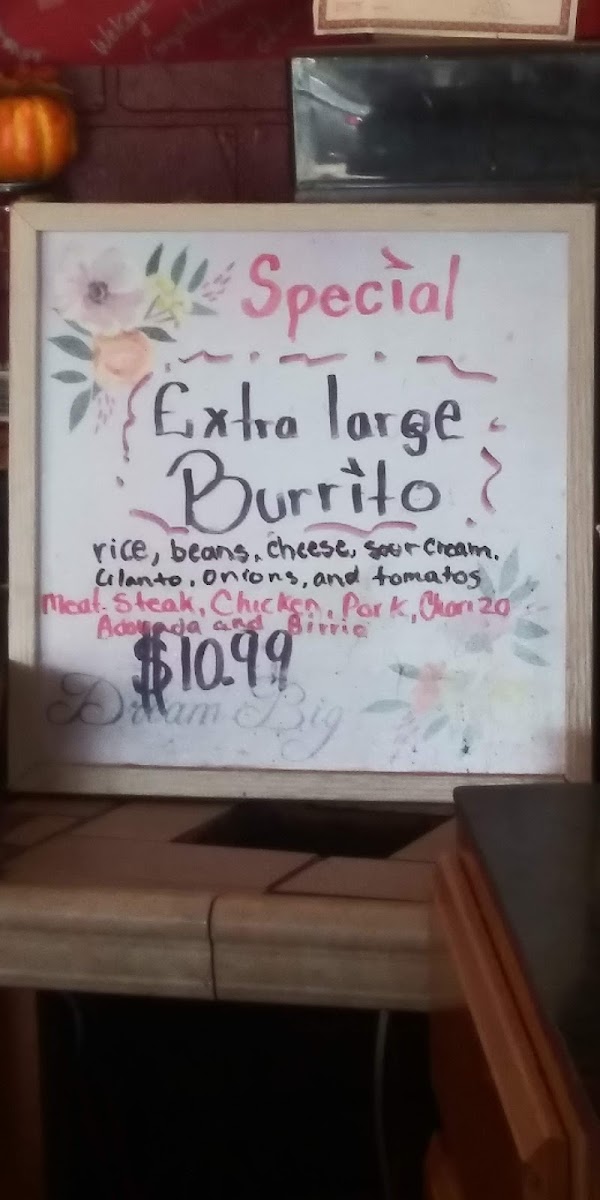 Welcome
Special
Extra large
Burrito
rice, beans, cheese, sour cream.
Cilanto, onions, and tomatos
Meat. Steak, Chicken, Pork, Chorizo
Adovada and Birria
$10.99
Dream Big